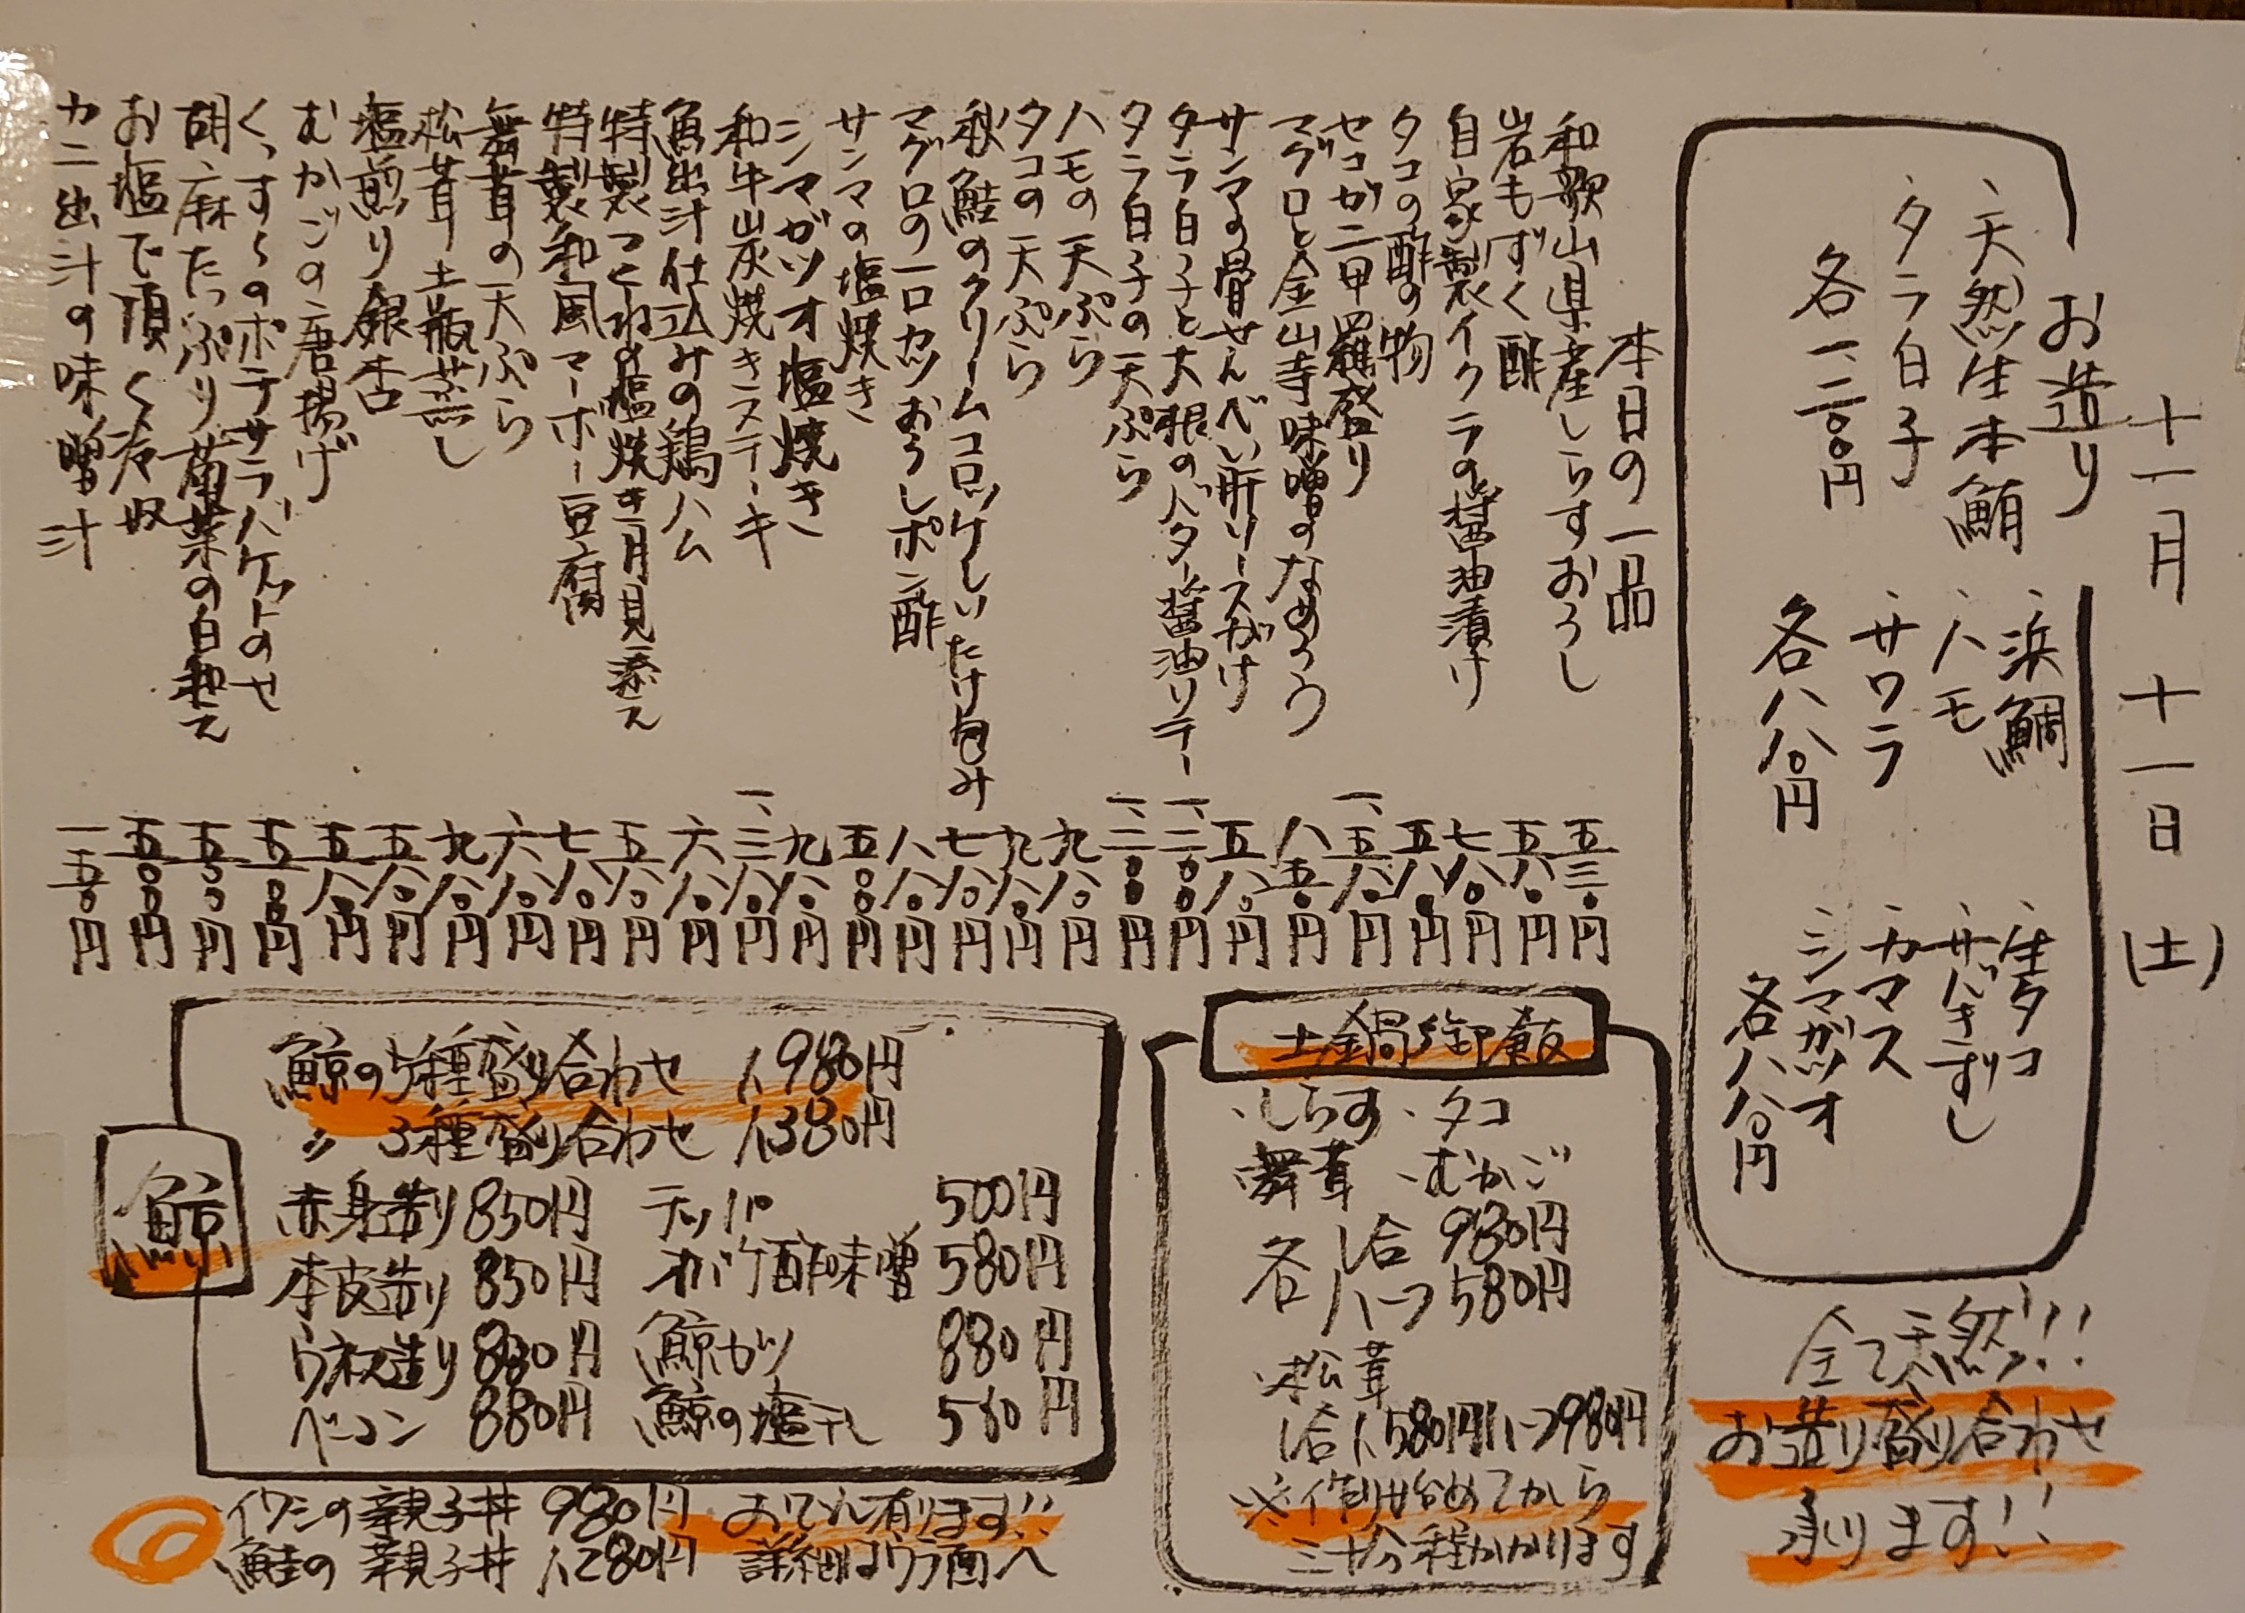 十一月十一日(土)
お造り
、天然生本鮪
、タラ白子
各一、二〇〇円
、浜鯛
、ハモ
、サワラ
各八八〇円
、生タコ
、サバきずし
、カマス
、シマガツオ
各八八〇円
全て天然!!!
お造り盛り合わせ
承ります!!
本日の一品
和歌山県産しらすおろし 五三〇円
岩もずく酢 五八〇円
自家製イクラの醤油漬け 七八〇円
タコの酢の物 五八〇円
セコガニ甲羅盛り 一、五八〇円
マグロと金山寺味噌のなめろう 八五〇円
サンマの骨せんべい肝ソースがけ 五八〇円
タラ白子と大根のバター醤油ソテー 一、二〇〇円
タラ白子の天ぷら 一、二〇〇円
ハモの天ぷら 九八〇円
タコの天ぷら 九八〇円
秋鮭のクリームコロッケしいたけ包み 七八〇円
マグロの一口カツおろしポン酢 八八〇円
サンマの塩焼き 五〇〇円
シマガツオ塩焼き 九八〇円
和牛炭焼きステーキ 一、三八〇円
魚出汁仕込みの鶏ハム 六八〇円
特製つくねの塩焼き月見添え 五八〇円
特製和風マーボー豆腐 七八〇円
舞茸の天ぷら 六八〇円
松茸土瓶蒸し 九八〇円
塩煎り銀杏 五八〇円
むかごの唐揚げ 五八〇円
くっすくのポテサラバケットのせ 五五〇円
胡麻たっぷり菊菜の白和え 五五〇円
お塩で頂く冷奴 五〇〇円
カニ出汁の味噌汁 一五〇円
土鍋御飯
、しらす 、タコ
舞茸 、むかご
各 1合 980円
各ハーフ 580円
、松茸
1合1,580円ハーフ980円
※作り始めてから
三十分程かかります
鯨
鯨の5種盛り合わせ 1,980円
〃 3種盛り合わせ 1,380円
赤身造り 850円 テッパ 500円
本皮造り 850円 オバケ酢味噌 580円
ウネス造り 880円 鯨カツ 880円
ベーコン 880円 鯨の塩干し 580円
イワシの親子丼 980円
鮭の親子丼 1,280円
おでん有ります!!
詳細はウラ面へ